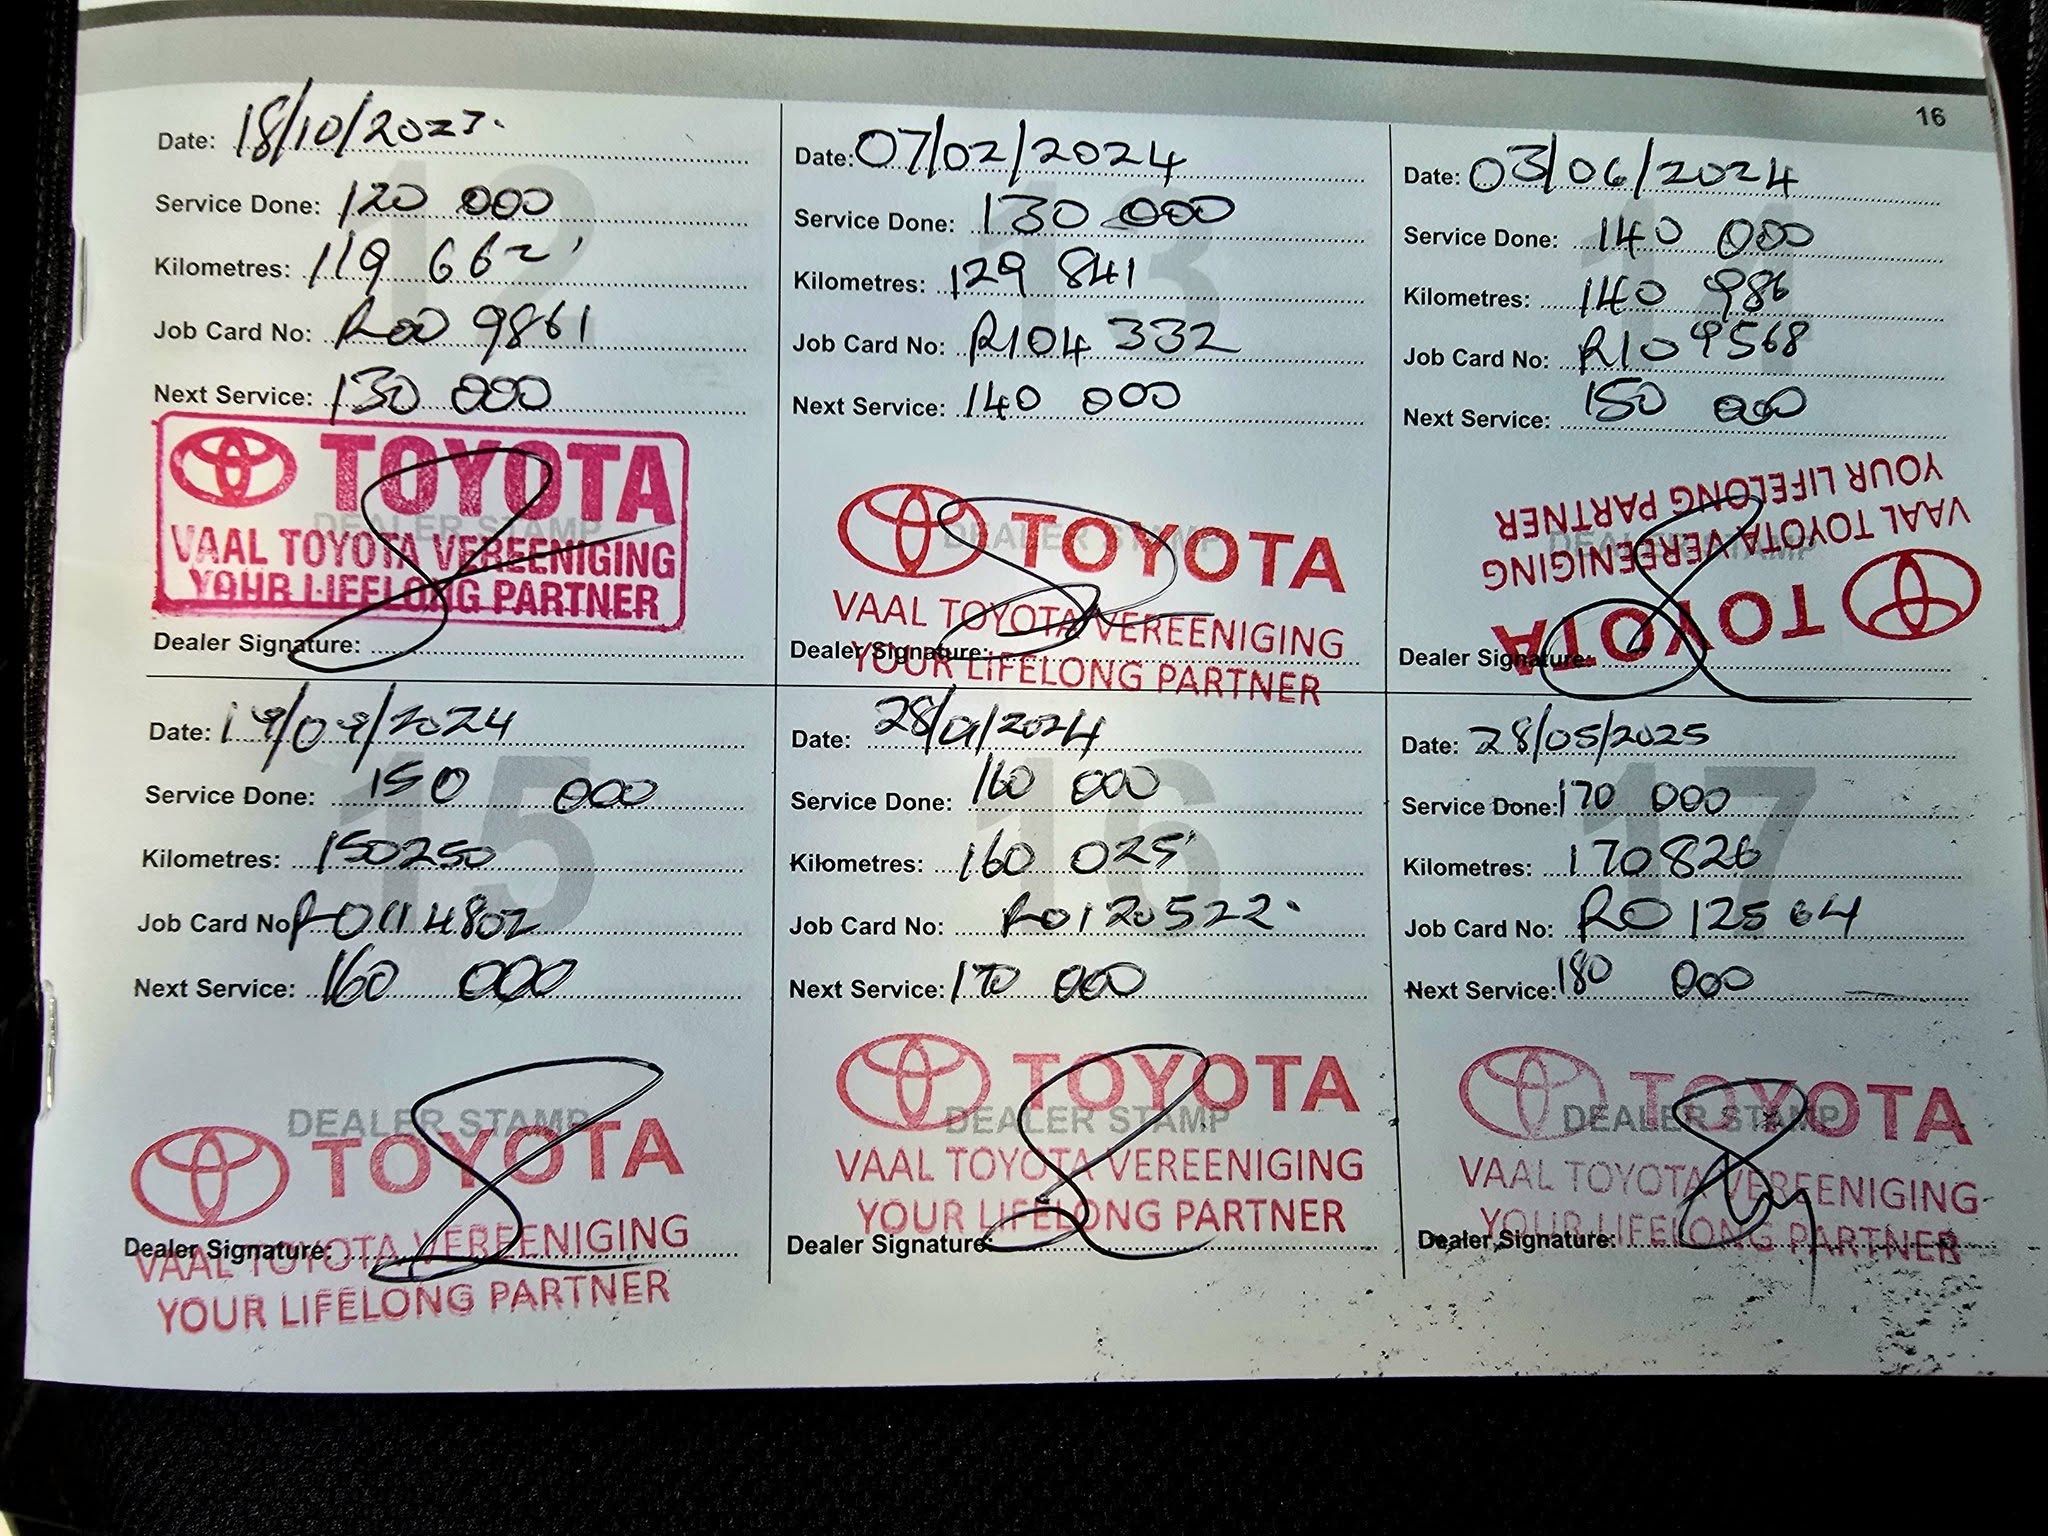 16
Date: 18/10/2023.
Service Done: 120 000
Kilometres: 119 662
Job Card No: R00 9861
Next Service: 130 000
DEALER STAMP
TOYOTA
VAAL TOYOTA VEREENIGING
YOUR LIFELONG PARTNER
Dealer Signature:
12
Date: 07/02/2024
Service Done: 130 000
Kilometres: 129 841
Job Card No: R104 332
Next Service: 140 000
DEALER STAMP
TOYOTA
VAAL TOYOTA VEREENIGING
YOUR LIFELONG PARTNER
Dealer Signature:
13
Date: 03/06/2024
Service Done: 140 000
Kilometres: 140 986
Job Card No: R109568
Next Service: 150 000
DEALER STAMP
TOYOTA
VAAL TOYOTA VEREENIGING
YOUR LIFELONG PARTNER
Dealer Signature:
14
Date: 19/09/2024
Service Done: 150 000
Kilometres: 150250
Job Card No: R0114802
Next Service: 160 000
DEALER STAMP
TOYOTA
VAAL TOYOTA VEREENIGING
YOUR LIFELONG PARTNER
Dealer Signature:
15
Date:
Service Done: 160 000
Kilometres: 160 025
Job Card No: R0120522
Next Service: 170 000
DEALER STAMP
TOYOTA
VAAL TOYOTA VEREENIGING
YOUR LIFELONG PARTNER
Dealer Signature:
16
Date: 28/05/2025
Service Done: 170 000
Kilometres: 170826
Job Card No: R0125664
Next Service: 180 000
DEALER STAMP
TOYOTA
VAAL TOYOTA VEREENIGING
YOUR LIFELONG PARTNER
Dealer Signature:
17